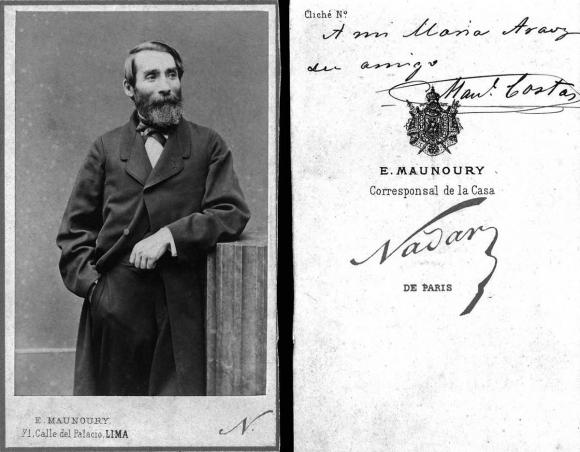 E. MAUNOURY.
71, Calle del Palacio, LIMA
N.
Cliché Nº
A mi Maria Araoz
su amigo
Manl. Costas
E. MAUNOURY
Corresponsal de la Casa
Nadar
DE PARIS